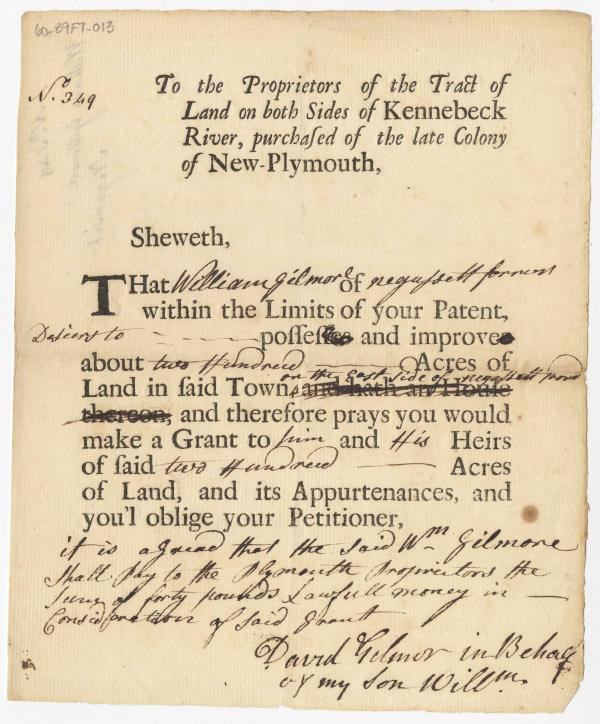 60-89F7-013
No. 349
To the Proprietors of the Tract of
Land on both Sides of Kennebeck
River, purchaſed of the late Colony
of New-Plymouth,
Sheweth,
THat William Gilmore of negussett
within the Limits of your Patent,
Desiers to poſſeſſes and improves
about two Hundred Acres of
on the East side of negussett pond
Land in ſaid Town, and hath an Houſe
thereon, and therefore prays you would
make a Grant to him and His Heirs
of ſaid two Hundred Acres
of Land, and its Appurtenances, and
you'l oblige your Petitioner,
it is agread that the said Wm Gilmore
Shall Pay to the Plymouth Proprietors the
Sum of forty pounds Lawfull money in
Consideration of said Grant
David Gilmor in Behalf
of my Son Willm